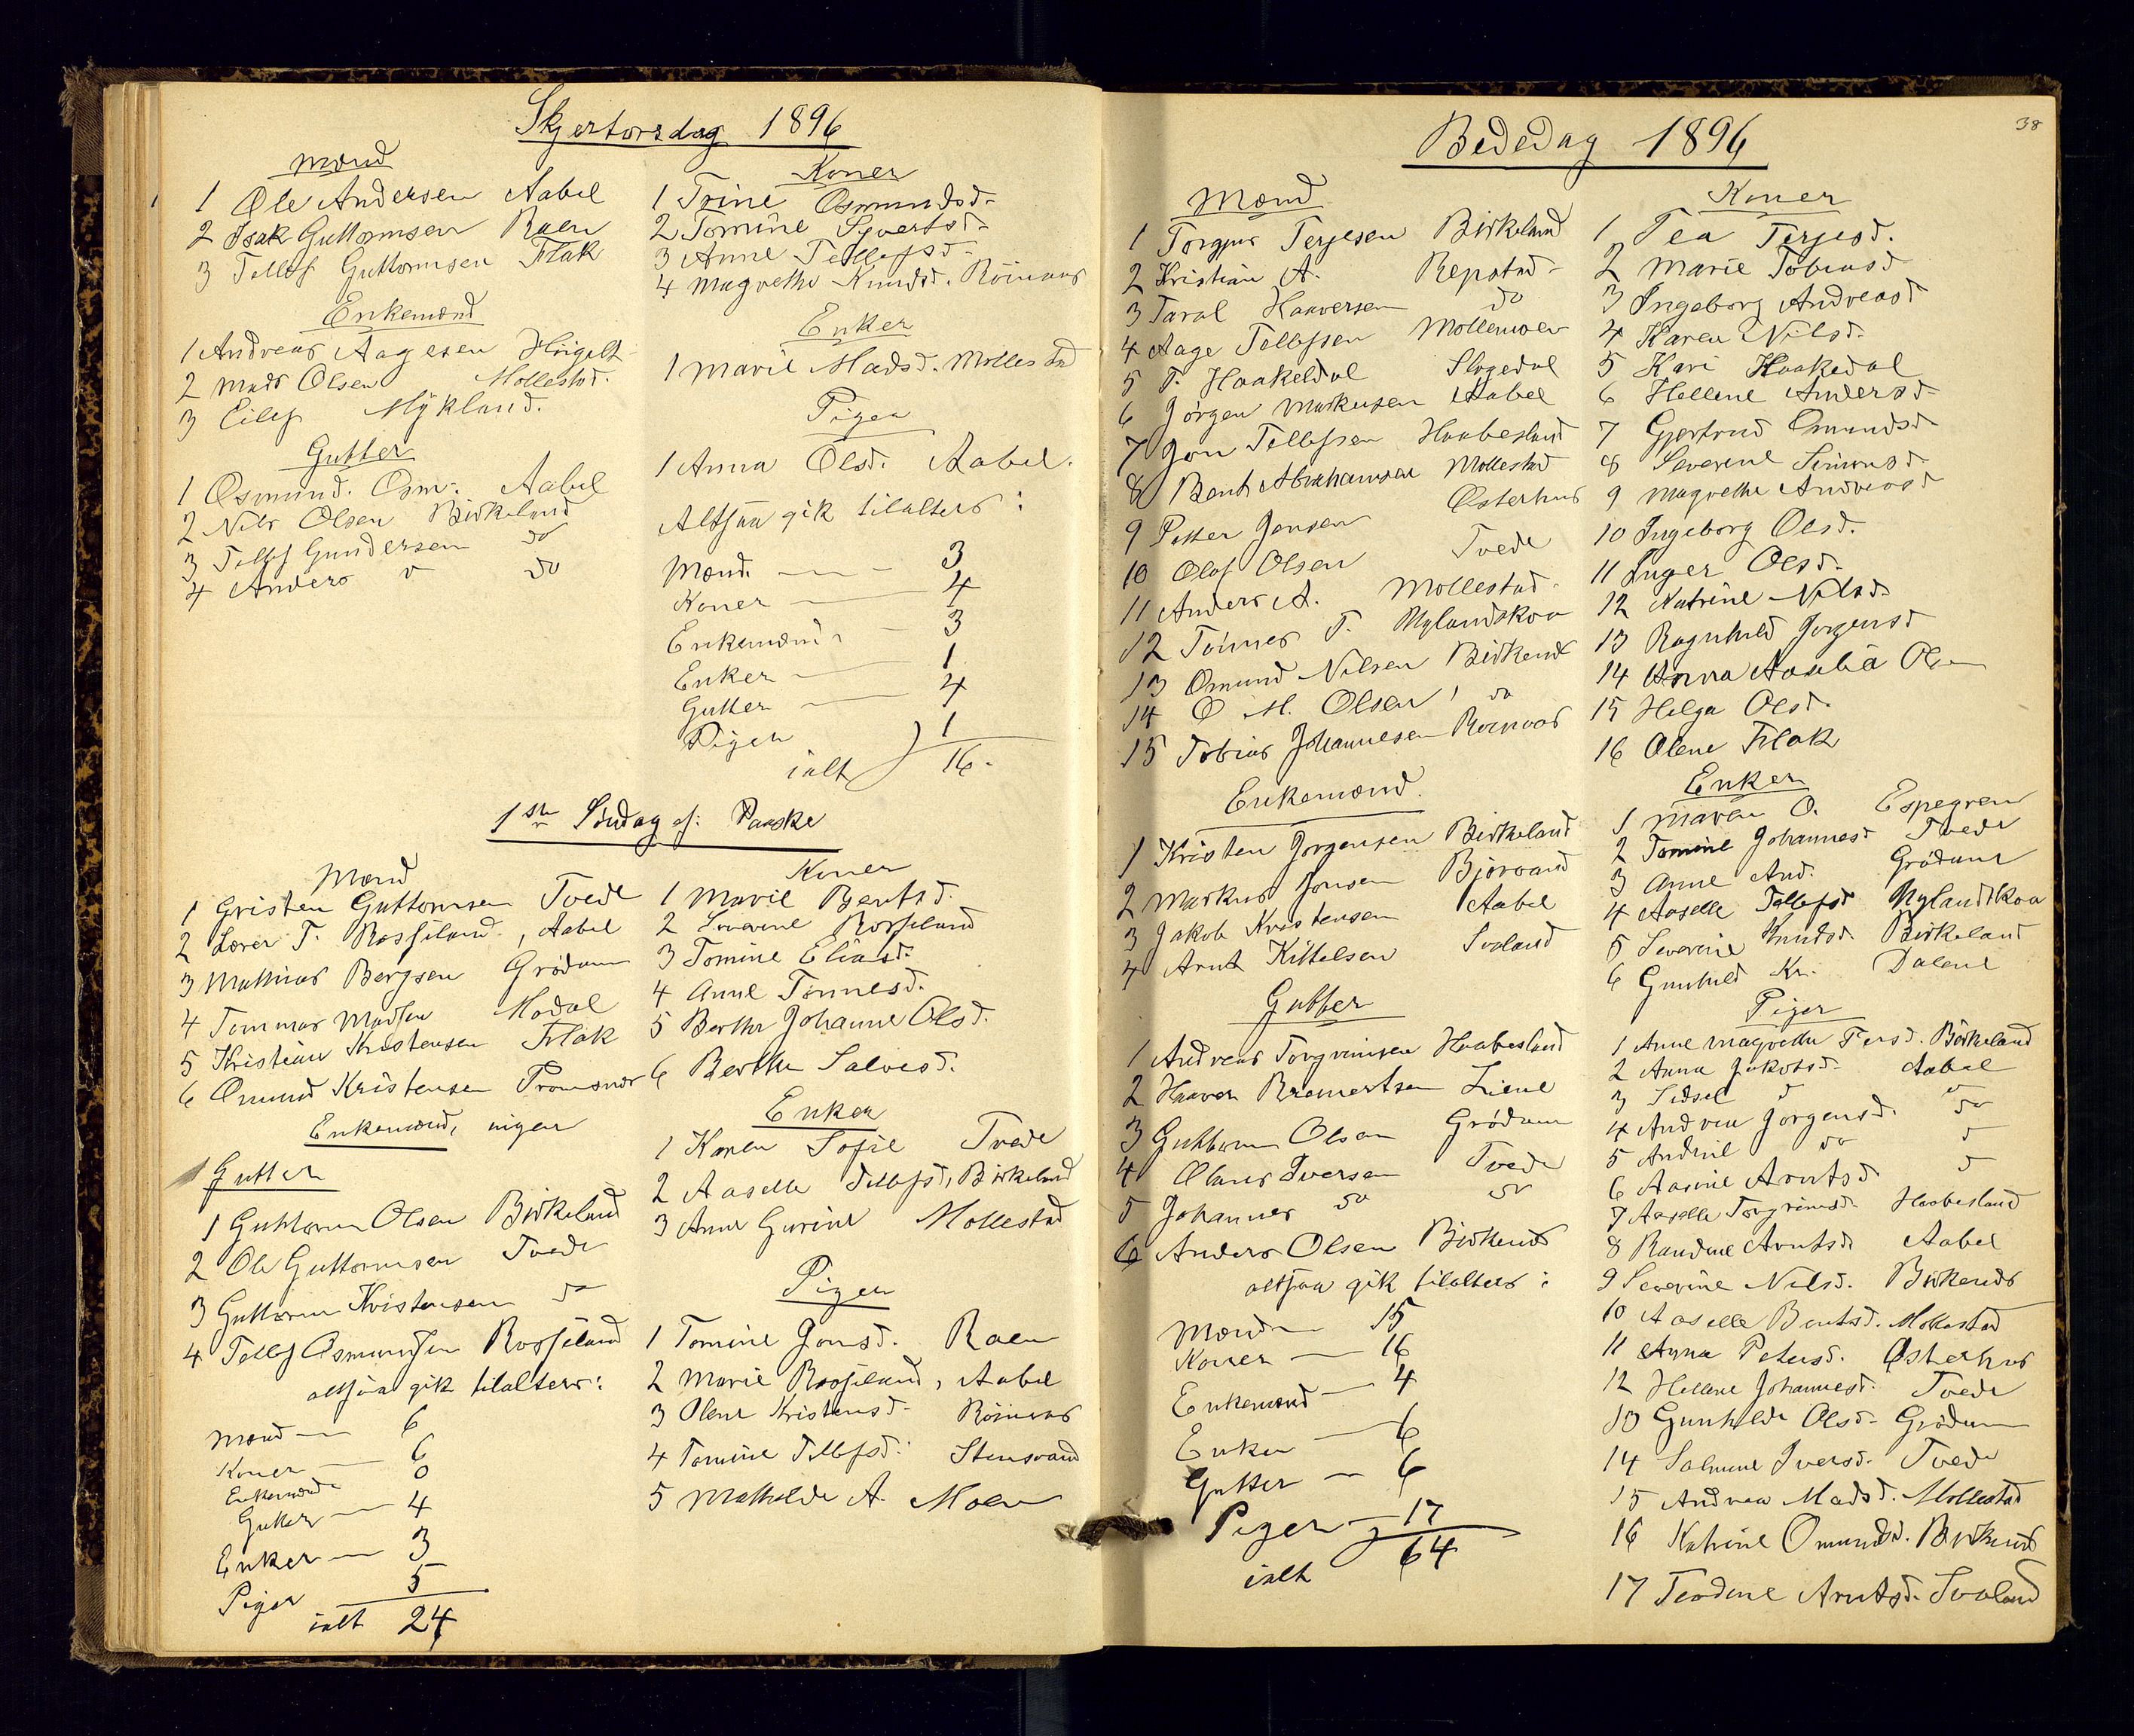 Skjertorsdag 1896
Mænd
1 Ole Andersen Aabel
2 Isak Guttormsen Raen
3 Tellef Guttormsen Flak
Enkemænd
1 Andreas Aagesen
2 Mads Olsen Mollestad.
3 Eilef Mykland.
Gutter
1 Osmund. Osm. Aabel
2 Nils Olsen Birkeland
3 Tellef Gundersen do
4 Anders do
Koner
1 Trine Osmundsd.
2 Tomine Syvertsd.
3 Anne Tellefsd.
4 Magrethe Knudsd. Röinaas
Enker
1 Marie Madsd. Mollestad
Piger
1 Anna Olsd. Aabel.
Altsaa gik tilalters:
Mænd 3
Koner 4
Enkemænd 3
Enker 1
Gutter 4
Piger 1
ialt 16.
1ste Söndag ef: Paaske
Mænd
1 Gristen Guttormsen Tvede
2 Lærer T. Rosseland, Aabel
3 Mathias Bergsen Grödum
4 Tommas Madsen Modal
5 Kristian Kristensen Flak
6 Omund Kristensen
Enkemænd, ingen
Gutter
1 Guttorm Olsen Birkeland
2 Ole Guttormsen Tvede
3 Guttorm Kristensen do
4 Tellef Osmundsen Rosseland
altsaa gik tilalters:
Mænd 6
Koner 6
Enkemænd 0
Gutter 4
Enker 3
Piger 5
ialt 24
Koner
1 Marie Bentsd.
2 Severine Rosseland
3 Tomine Eliasd.
4 Anne Tönnesd.
5 Berthe Johanne Olsd.
6 Berthe Salvesd.
Enker
1 Karen Sofie Tvede
2 Aaselle Tellefsd, Birkeland
3 Anne Gurine Mollestad
Piger
1 Tomine Jonsd. Raen
2 Marie Rosseland, Aabel
3 Olene Kristensd. Röinaas
4 Tomine Tellefsd. Stensvand
5 Mathilde A. Moen
38
Bededag 1896
Mænd
1 Torgjus Terjesen Birkeland
2 Kristian A. Repstad
3 Taral Haaversen do
4 Aage Tellefsen Mollemoen
5 T. Haakedal Slogedal
6 Jörgen Markusen Aabel
7 Jon Tellefsen Haabesland
8 Bent Abrahamsen Mollestad
9 Petter Jensen Osterhus
10 Olaf Olsen Tvede
11 Anders A. Mollestad.
12 Tönnes T. Nylandskaa
13 Omund Nilsen Birkenes
14 O M. Olsen, do
15 Tobias Johannesen
Enkemænd.
1 Kristen Jorgensen Birkeland
2 Markus Jonsen Björvand
3 Jakob Kristensen Aabel
4 Arnt Kittelsen Svaland
Gutter
1 Andreas Torgrimsen Haabesland
2 Haaver Bremertsen Liene
3 Guttorm Olsen Grödum
4 Olaus Iversen Tvede
5 Johannes do do
6 Anders Olsen Birkenes
altsaa gik tilalters:
Mænd 15
Koner 16
Enkemænd 4
Enker 6
Gutter 6
Piger 17
ialt 64
Koner
1 Tea Terjesd.
2 Marie Tobiasd
3 Ingeborg Andreasd
4 Karen Nilsd.
5 Kari Haakedal
6 Hellene Andersd.
7 Gjertrud Omundsd
8 Severine Simonsd.
9 Magrethe Andreasd
10 Ingeborg Olsd.
11 Inger Olsd.
12 Katrine Nilsd.
13 Ragnhild Jorgensd
14 Anna Olsen
15 Helga Olsd.
16 Olene Flak
Enker
1 Maren O. Espegren
2 Tomine Johannesd Tvede
3 Anne And. Grödum
4 Aaselle Tellefsd Nylandskaa
5 Severine Knudsd. Birkeland
6 Gunhild Kr. Dalene
Piger
1 Anne Magrethe Tersd. Birkeland
2 Anna Jakobsd. Aabel
3 Sidsel d do
4 Andrea Jorgensd. do
5 Andrine do d
6 Aasine Arntsd d
7 Aaselle Torgrimsd. Haabesland
8 Randine Arntsd. Aabel
9 Severine Nilsd. Birkenes
10 Aaselle Bentsd. Mollestad
11 Anna Petersd. Osterhus
12 Hellene Johannesd. Tvede
13 Gunhilde Olsd. Grödum
14 Salmine Iversd. Tvede
15 Andrea Madsd. Mollestad
16 Katrine Omundsd. Birkenes
17 Teodine Arntsd. Svaland